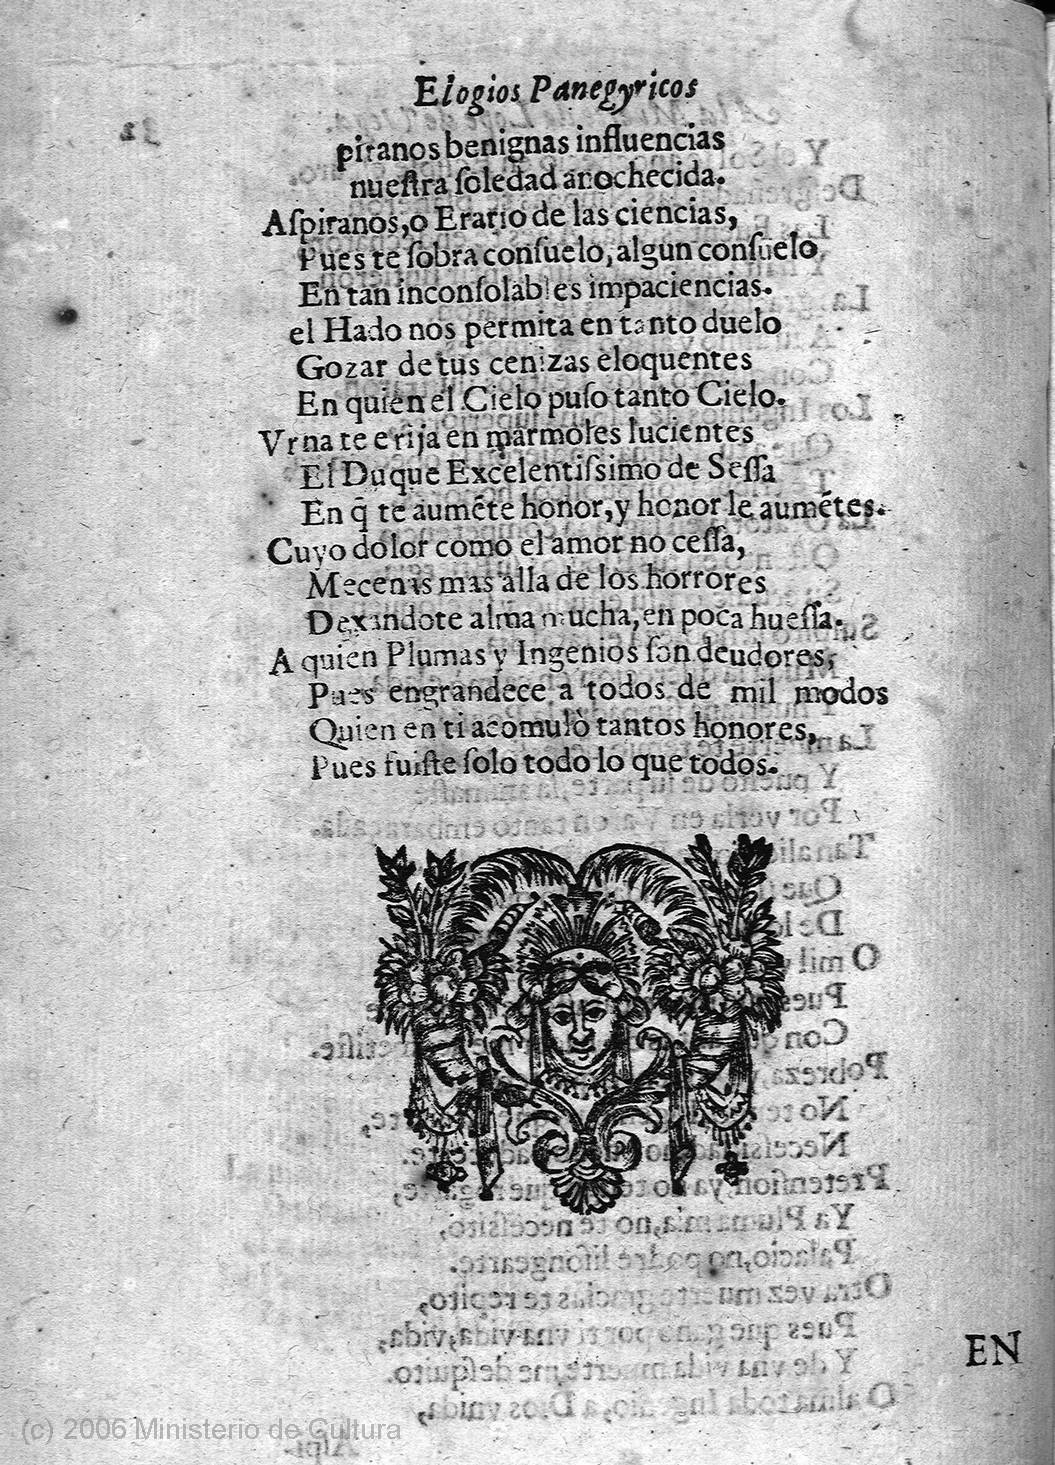 Elogios Panegyricos
piranos benignas influencias
nueſtra ſoledad anochecida.
Aſpiranos, o Erario de las ciencias,
Pues te ſobra conſuelo, algun conſuelo
En tan inconſolables impaciencias.
el Hado nos permita en tanto duelo
Gozar de tus cenizas eloquentes
En quien el Cielo puſo tanto Cielo.
Vrna te erija en marmoles lucientes
El Duque Excelentiſsimo de Seſſa
En q̃ te aumẽte honor, y honor le aumẽtes.
Cuyo dolor como el amor no ceſſa,
Mecenas mas alla de los horrores
Dexandote alma mucha, en poca hueſſa.
A quien Plumas y Ingenios ſon deudores,
Pues engrandece a todos de mil modos
Quien en ti acomulò tantos honores,
Pues fuiſte ſolo todo lo que todos.
EN
(c) 2006 Ministerio de Cultura